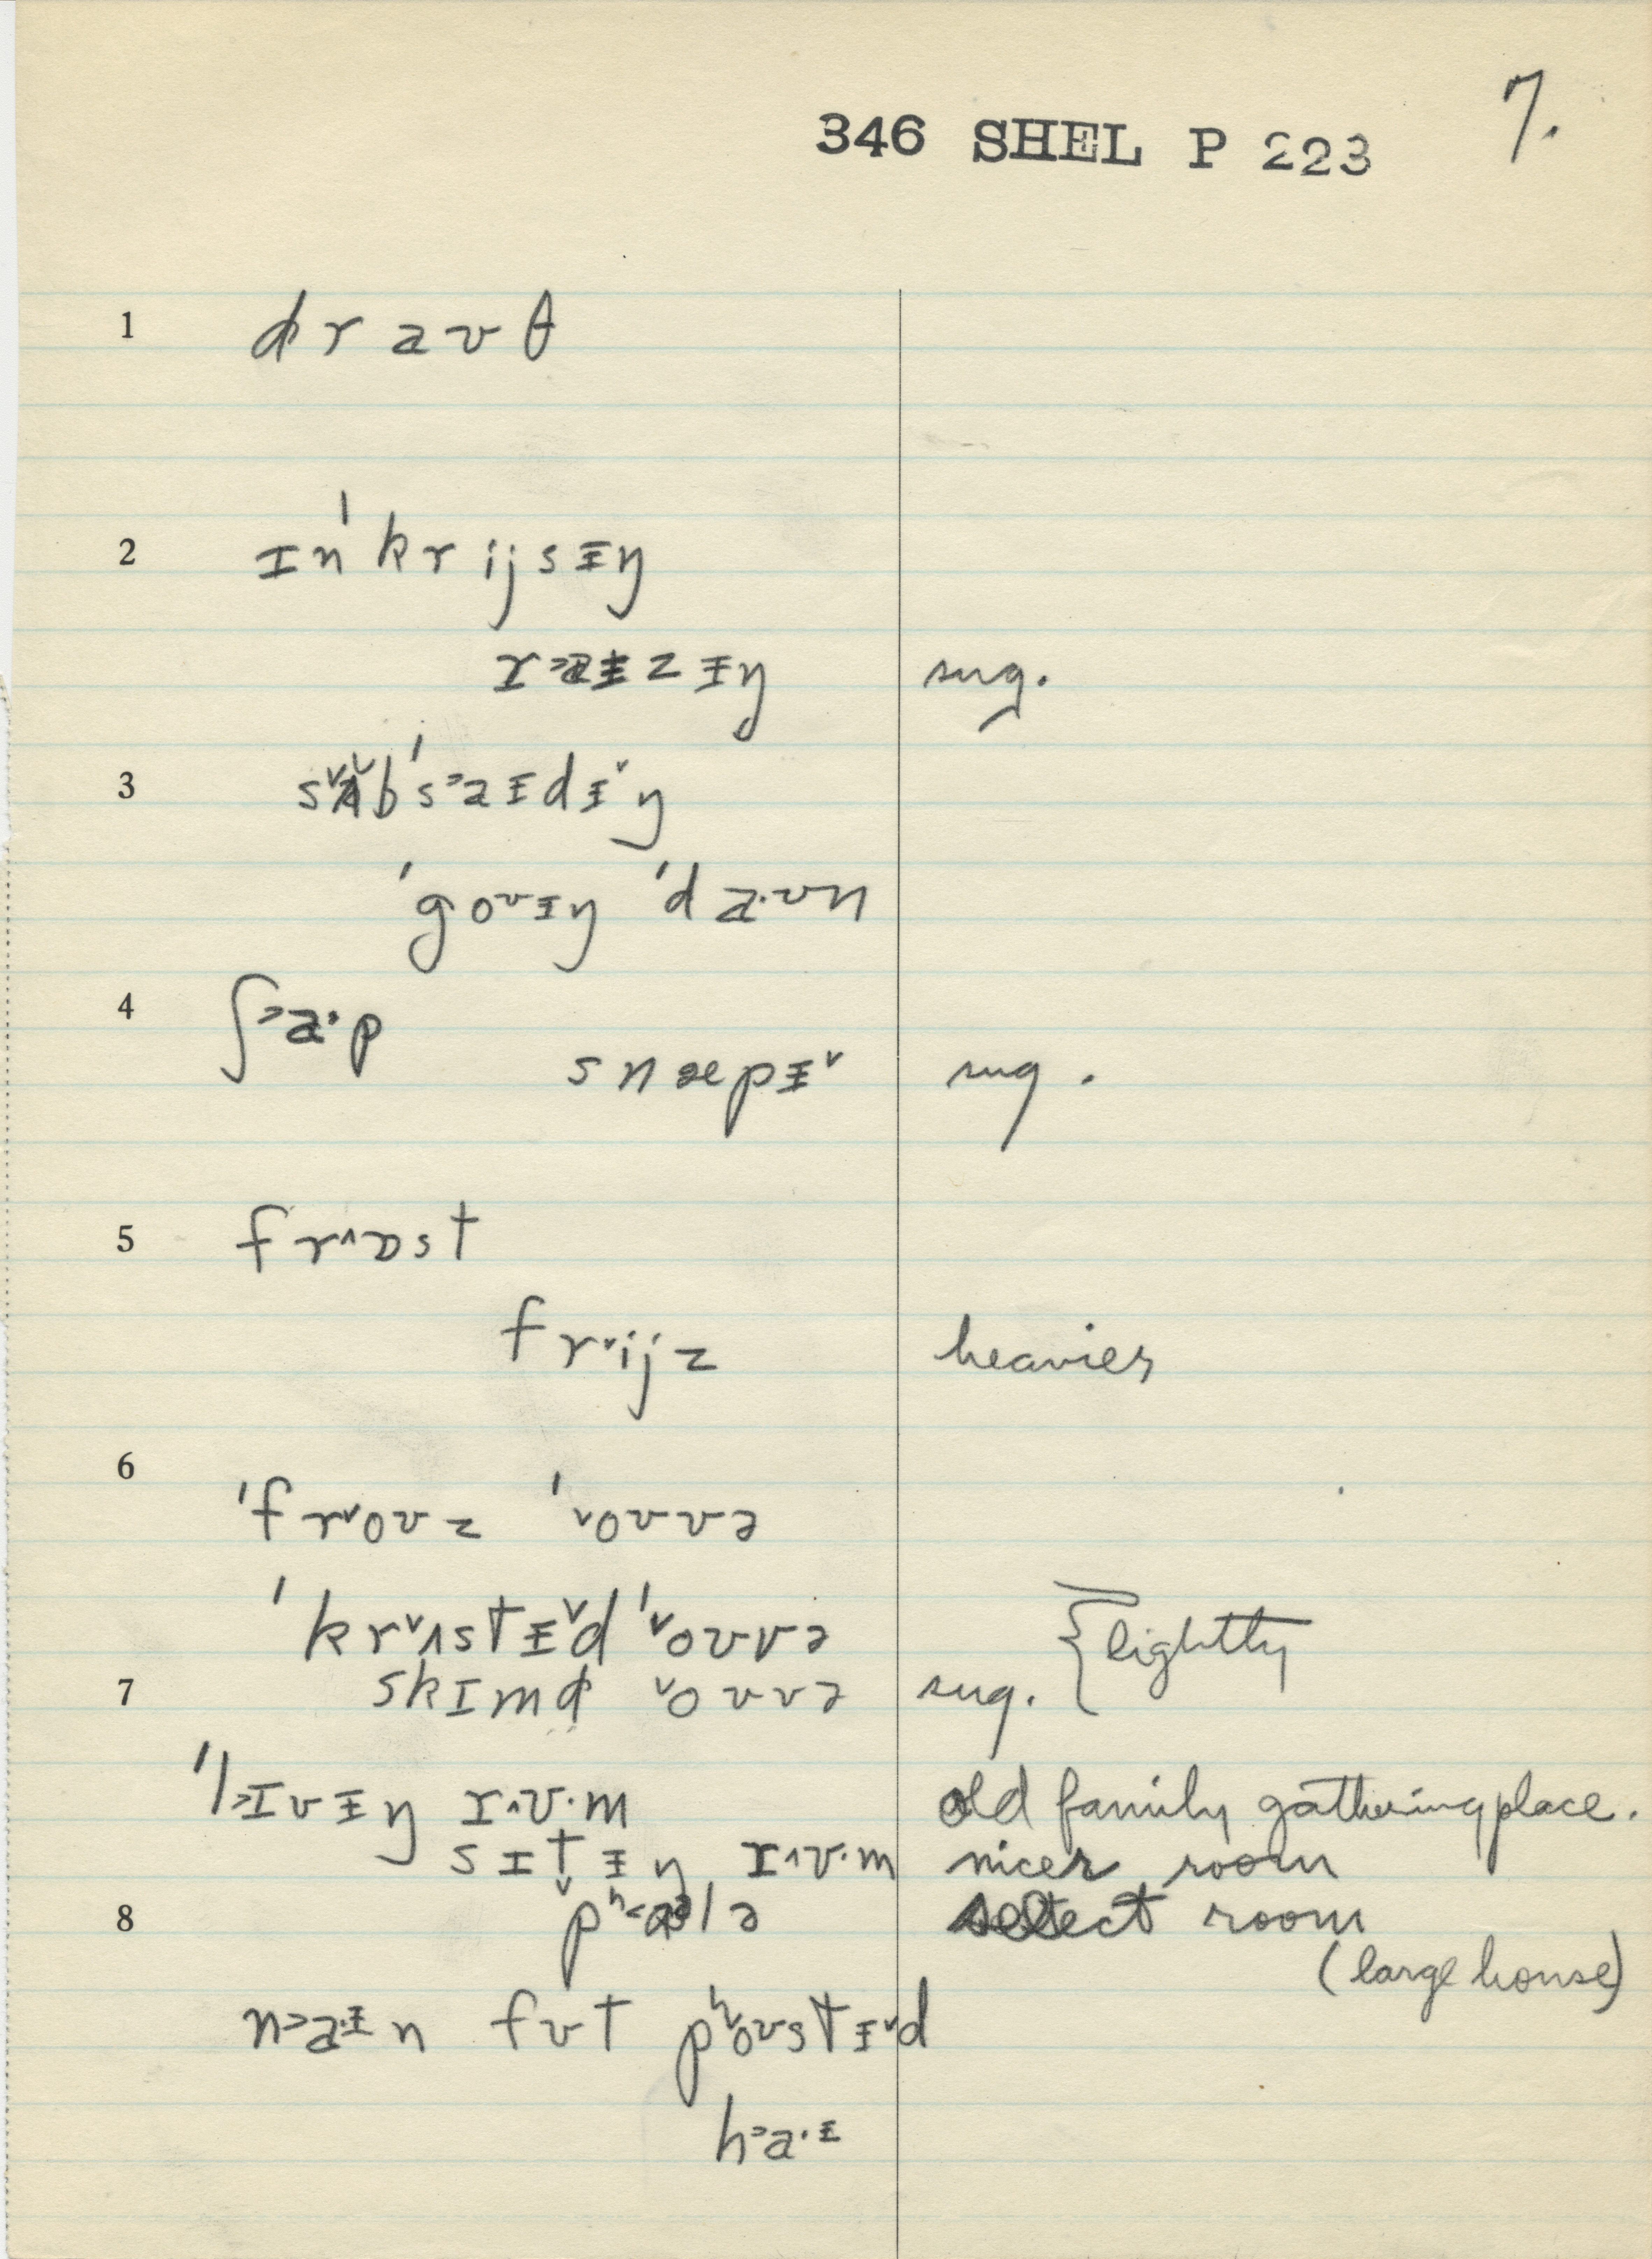 346 SHEL P 223 7.
1 d̸raʊθ
2 ɪn'krijsɨŋ
r˃aɨzɨŋ sug.
3 sʌ˅b's˃aɨdɨ˅ŋ
'goʊɨŋ 'da·ʊn
4 ʃ˃a·p
snæpɨ˅ sug.
5 fr˄ɒst
fr˅ijz heavier
6
'fr˅oʊz '˅oʊvə
'kr˅ʌstɨ˅d '˅oʊvə { lightly
7 skɪmd̸ ˅oʊvə sug.
'l˃ɪvɨŋ r˄ʊ·m old family gathering place.
sɪt̬ɨŋ r˄ʊ·m nicer room
8 pʰ˂ɑlə select room
(large house)
n˃a·ɨn fʊt pʰ˅oʊstɨ˅d
h˃a·ɨ